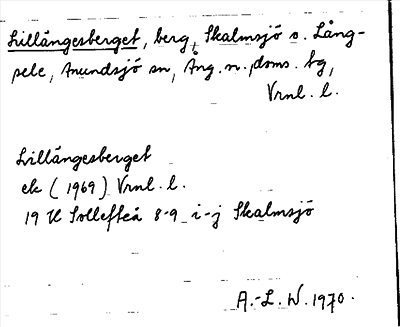 Lillängesberget, berg, Skalmsjö s. Lång-
sele, Anundsjö sn, Ång. n. doms. bg,
Vrnl. l.
Lillängesberget
ek (1969) Vrnl. l.
19 H Sollefteå 8-9 i-j Skalmsjö
A.-L. W. 1970.